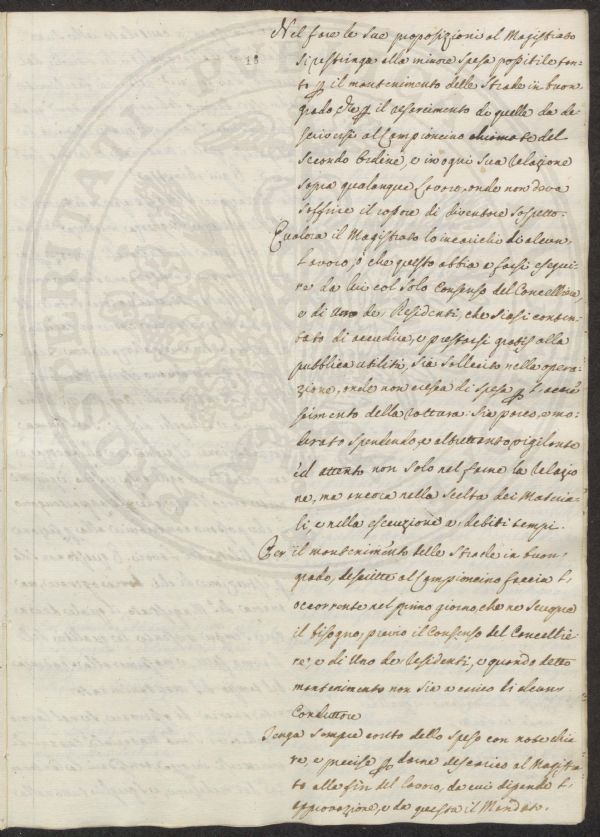 Nel fare le Sue proposizioni al Magistrato
18
Si restringa alla minore spesa possibile tan-
to p il mantenimento delle Strade in buon
grado, che p il risarcimento di quelle da de-
scriversi al Campioncino chiamate del
Secondo Ordine, e in ogni Sua Relazione
sopra qualunque Lavoro, onde non deva
soffrire il rossore di diventare Sospetto.
Qualora il Magistrato lo incarichi di alcun
Lavoro, o che questo abbia a farsi esegui-
re da lui col Solo Consenso del Cancelliere,
e di Uno de Residenti, che Siasi conten-
tato di accudire, e prestarsi gratis alla
pubblica utilità, Sia Sollecito nella opera-
zione, onde non cresca di Spesa p l'accre-
scimento della rottura. Sia parco, e mo-
derato Spendendo, e altrettanto vigilante
ed attento non Solo nel farne la Relazio-
ne, ma ancora nella Scelta dei Materia-
li, e nella esecuzione a debiti tempi.
Per il mantenimento delle Strade in buon
grado, descritte al Campioncino faccia l'
occorrente nel primo giorno, che ne Scuopre
il bisogno, previo il Consenso del Cancellie-
re, e di Uno de Residenti, e quando detto
mantenimento non Sia a carico di alcun
Conduttore
Tenga Sempre conto delle Spese con note chia-
re, e precise p darne descarico al Magistra-
to alla fin del lavoro, da cui dipende l'
approvazione, e da questa il Mandato.
PROSPERITATI PUBLICAE